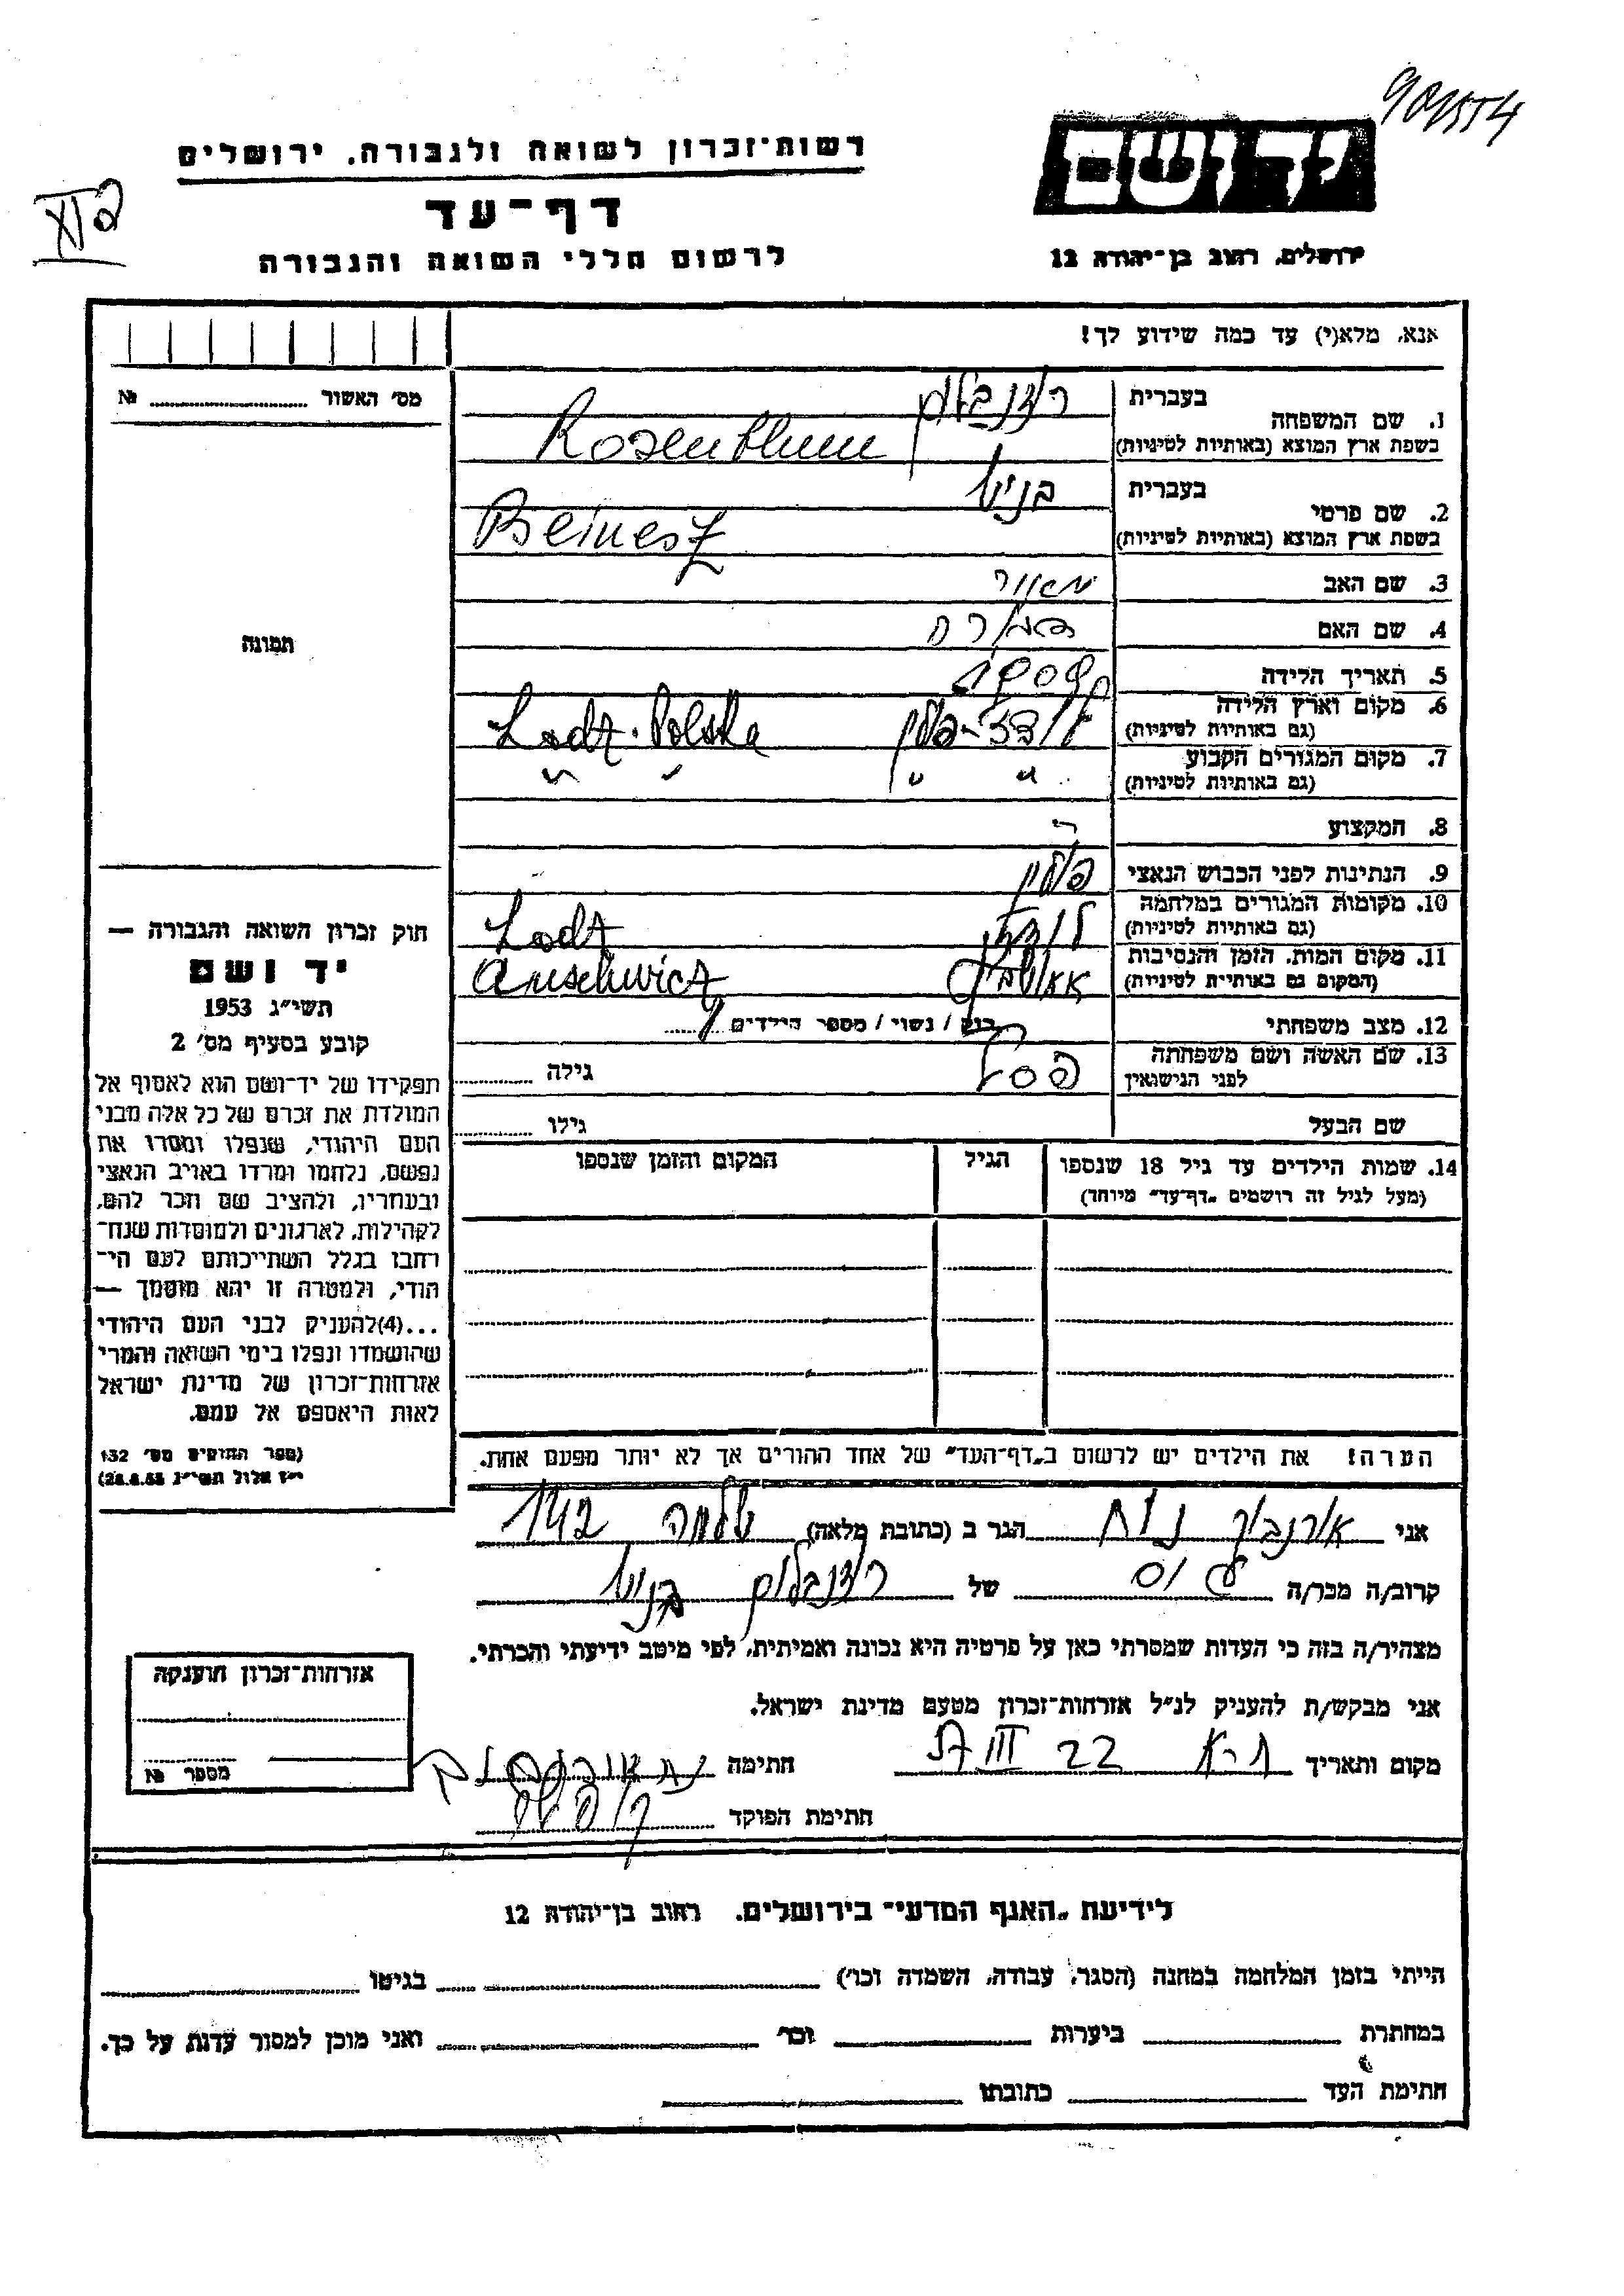 רשות־זכרון לשואה ולגבורה, ירושלים
דף־עד
לרשום חללי השואה והגבורה
יד ושם
ירושלים, רחוב בן־יהודה 12
אנא, מלא(י) עד כמה שידוע לך!
מס' האשור № 
תמונה
1. שם המשפחה בעברית רוזנבלום
בשפת ארץ המוצא (באותיות לטיניות) Rosenblum
2. שם פרטי בעברית
בשפת ארץ המוצא (באותיות לטיניות)
3. שם האב
4. שם האם
5. תאריך הלידה
6. מקום וארץ הלידה לודז - פולין Lodz. Polska
(גם באותיות לטיניות)
7. מקום המגורים הקבוע " " " "
(גם באותיות לטיניות)
8. המקצוע
9. הנתינות לפני הכבוש הנאצי פולין
10. מקומות המגורים במלחמה Lodz
(גם באותיות לטיניות)
11. מקום המות, הזמן והנסיבות
(המקום גם באותיות לטיניות)
12. מצב משפחתי רוק / נשוי / מספר הילדים
13. שם האשה ושם משפחתה גילה
לפני הנישואין
שם הבעל גילו
14. שמות הילדים עד גיל 18 שנספו הגיל המקום והזמן שנספו
(מעל לגיל זה רושמים „דף־עד" מיוחד)
הערה! את הילדים יש לרשום ב„דף־העד" של אחד ההורים אך לא יותר מפעם אחת.
חוק זכרון השואה והגבורה —
יד ושם
תשי"ג 1953
קובע בסעיף מס' 2
תפקידו של יד־ושם הוא לאסוף אל
המולדת את זכרם של כל אלה מבני
העם היהודי, שנפלו ומסרו את
נפשם, נלחמו ומרדו באויב הנאצי
ובעוזריו, ולהציב שם וזכר להם,
לקהילות, לארגונים ולמוסדות שנח־
רבו בגלל השתייכותם לעם הי־
הודי, ולמטרה זו יהא מוסמך —
...(4)להעניק לבני העם היהודי
שהושמדו ונפלו בימי השואה והמרי
אזרחות־זכרון של מדינת ישראל
לאות היאספם אל עמם.
(ספר החוקים מס' 132
י"ז אלול תשי"ג 28.8.53)
אני נוח הגר ב (כתובת מלאה) שלמה 142
קרוב/ה מכר/ה של רוזנבלום
מצהיר/ה בזה כי העדות שמסרתי כאן על פרטיה היא נכונה ואמיתית, לפי מיטב ידיעתי והכרתי.
אני מבקש/ת להעניק לנ"ל אזרחות־זכרון מטעם מדינת ישראל.
מקום ותאריך ת־א 22 III 57 חתימה
חתימת הפוקד
אזרחות־זכרון הוענקה
מספר №
לידיעת „האגף המדעי" בירושלים, רחוב בן־יהודה 12
הייתי בזמן המלחמה במחנה (הסגר, עבודה, השמדה וכו') בגיטו
במחתרת ביערות וכו' ואני מוכן למסור עדות על כך.
חתימת העד כתובתו